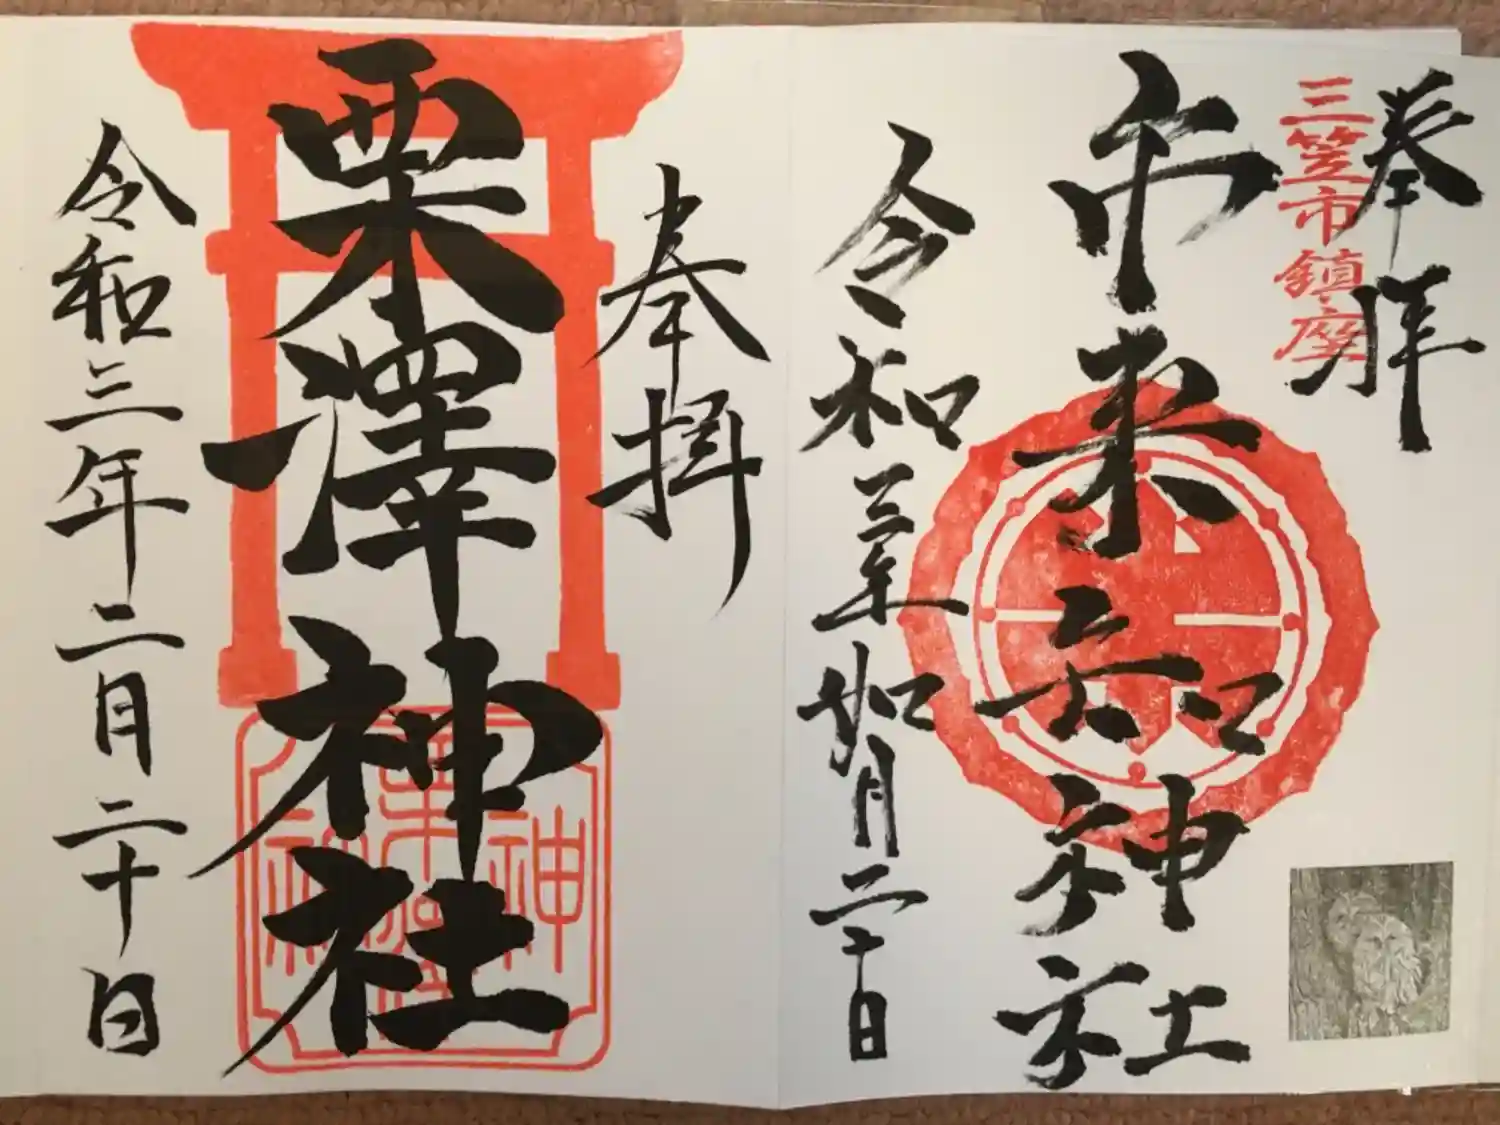 奉拝
三笠市鎮座
市来知神社
令和三年如月二十日
奉拝
栗澤神社
令和三年二月二十日